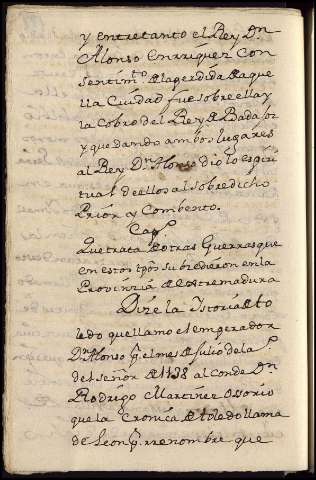 y entretanto el Rey Dn
Alonso Enrriquez Con
Sentimto de la perdida de aque
lla Ciudad fue sobre ella y
la Cobro del Rey de Badajoz
y quedando ambos lugares
al Rey Dn Alonso dio lo espiri
tual de ellos al sobre dicho
Prior y Combento.
Capo
Que trata de otras Guerras que
en estos tpos subcedieron en la
Provinzia de Extremadura
Dize la Istoria de to
ledo que llamo el emperador
Dn Alonso q el mes de Julio de la
del señor de 1138 al conde Dn
Rodrigo Martinez Ossorio
que la Cronica de toledo llama
de Leon q rrenombre que